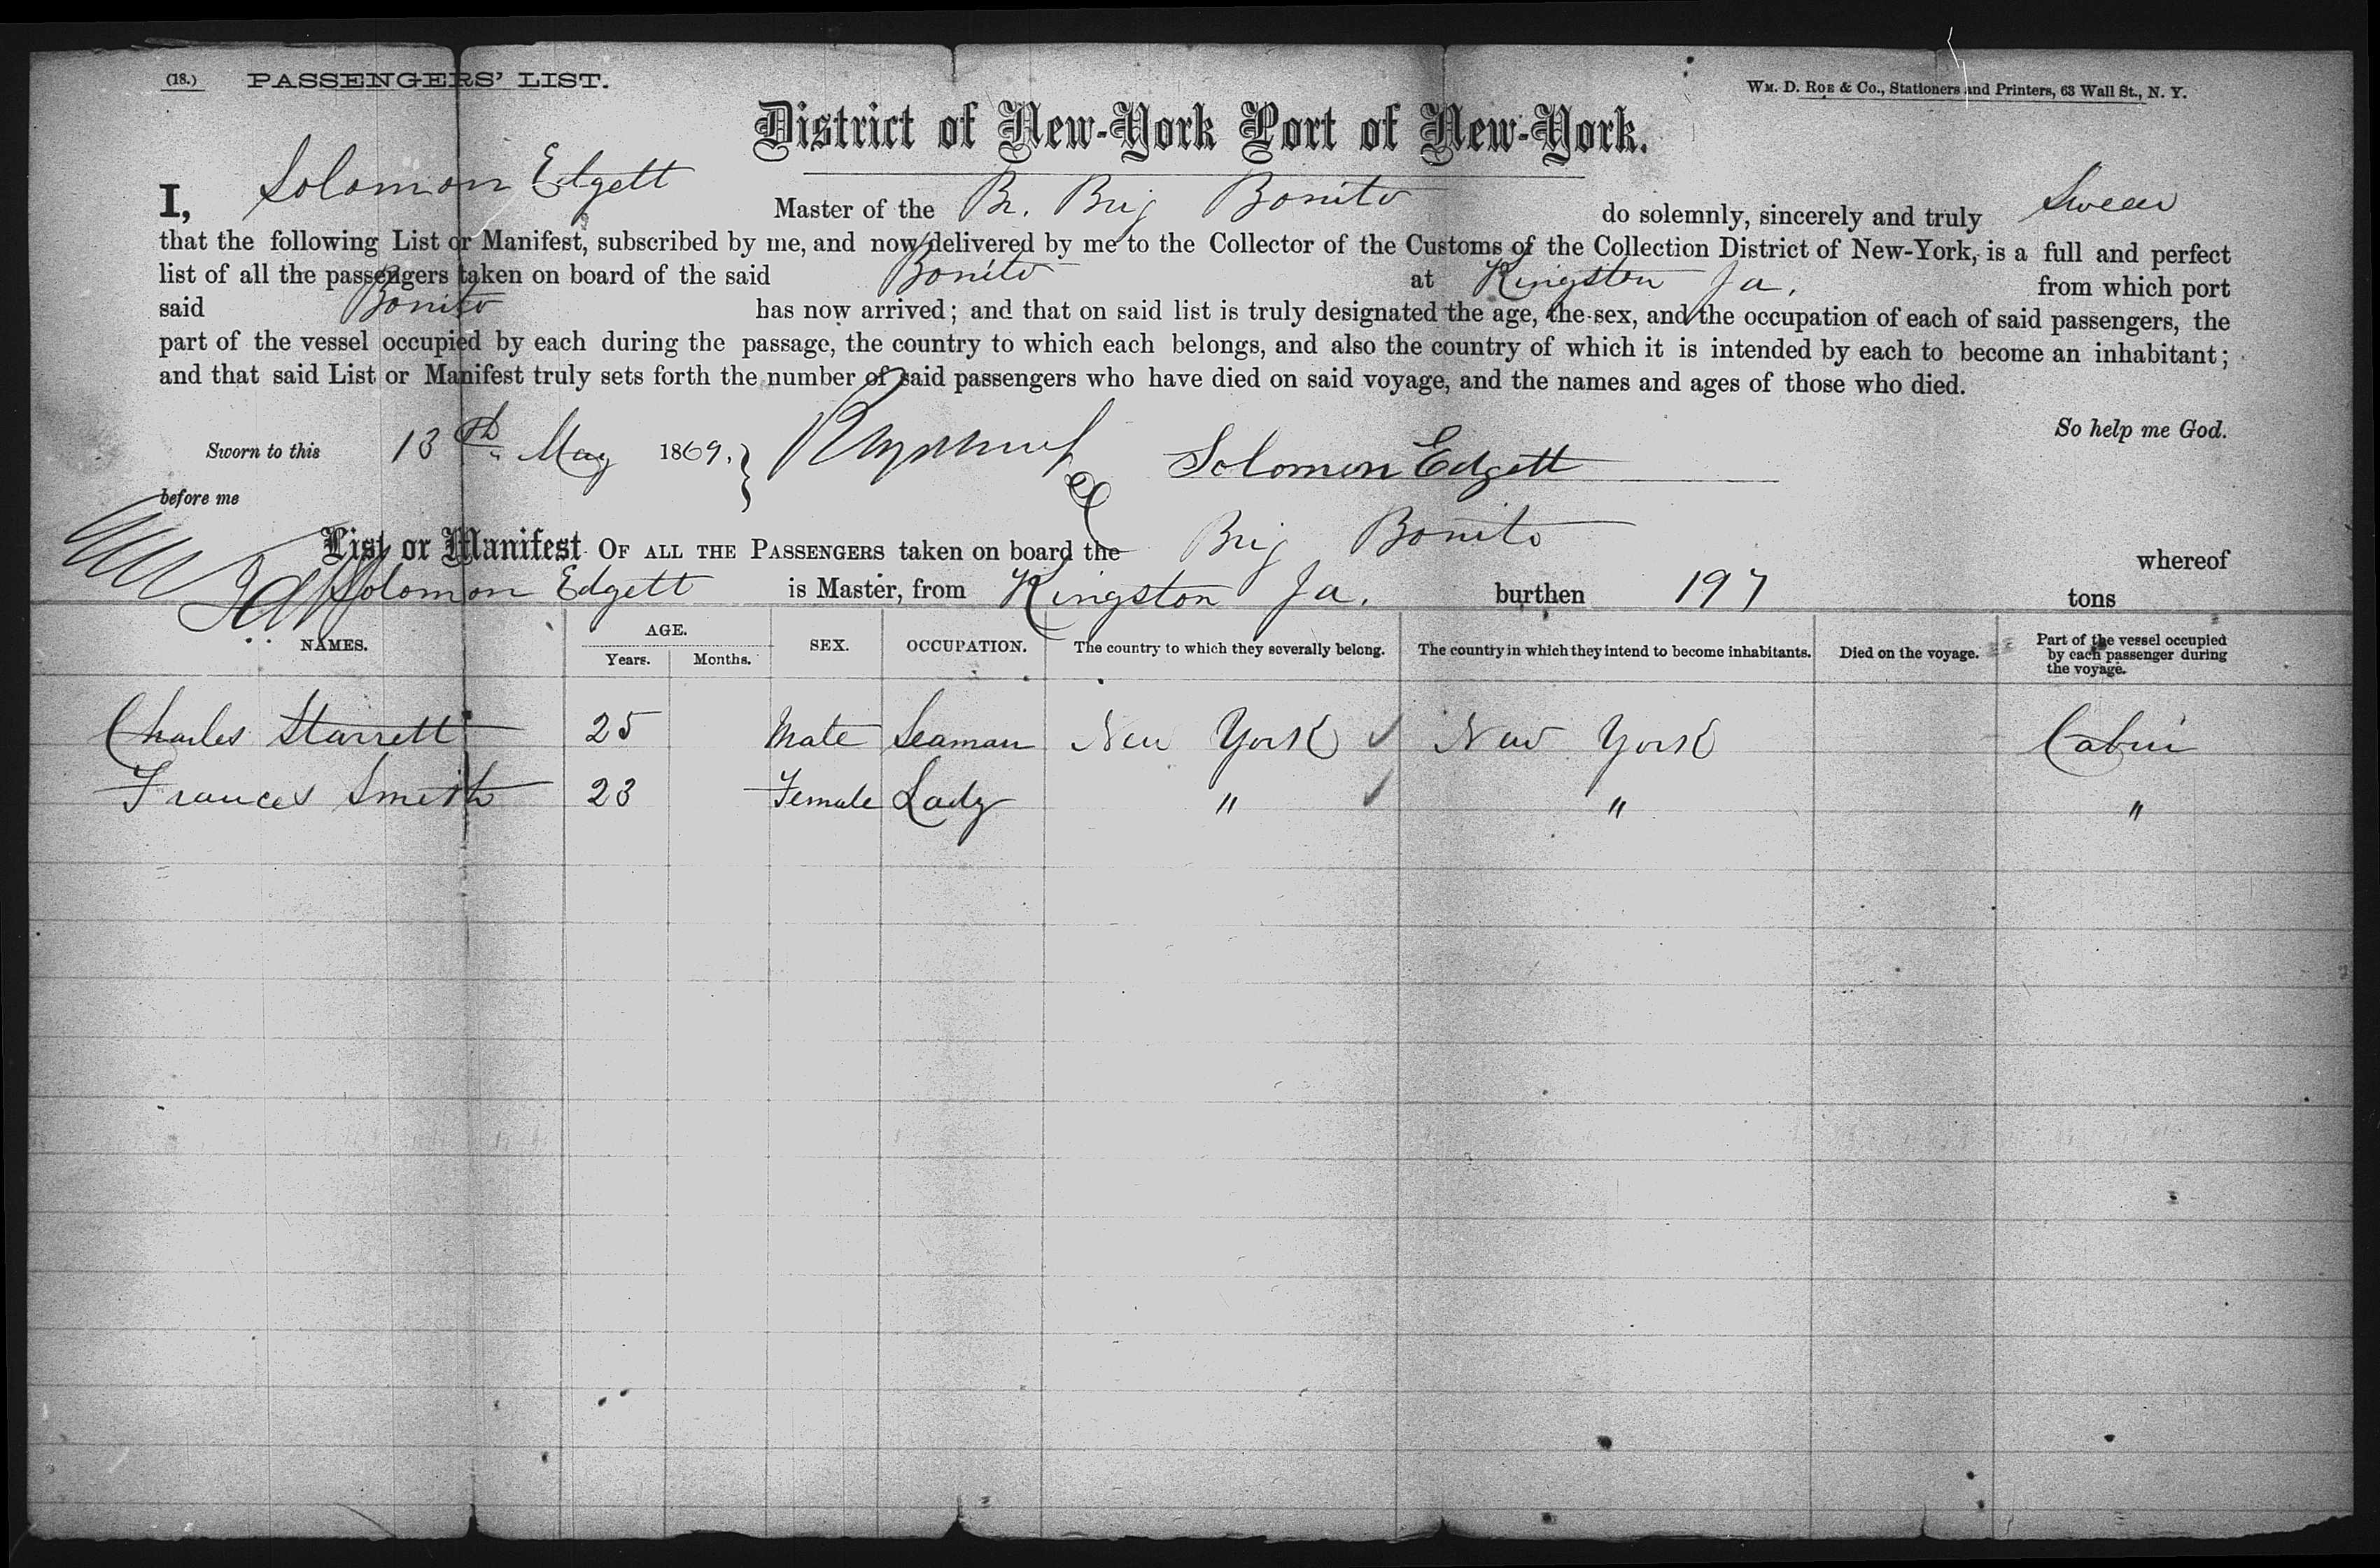 (18.) PASSENGERS' LIST.
Wm. D. Roe & Co., Stationers and Printers, 63 Wall St., N. Y.
District of New-York Port of New-York.
I, Solomon Edgett Master of the Br. Brig Bonito do solemnly, sincerely and truly Swear
that the following List or Manifest, subscribed by me, and now delivered by me to the Collector of the Customs of the Collection District of New-York, is a full and perfect
list of all the passengers taken on board of the said Bonito at Kingston Ja. from which port
said Bonito has now arrived; and that on said list is truly designated the age, the sex, and the occupation of each of said passengers, the
part of the vessel occupied by each during the passage, the country to which each belongs, and also the country of which it is intended by each to become an inhabitant;
and that said List or Manifest truly sets forth the number of said passengers who have died on said voyage, and the names and ages of those who died.
So help me God.
Sworn to this 13th May 1869. } Solomon Edgett
before me
List or Manifest OF ALL THE PASSENGERS taken on board the Brig Bonito whereof
Solomon Edgett is Master, from Kingston Ja. burthen 197 tons
NAMES. AGE. Years. Months. SEX. OCCUPATION. The country to which they severally belong. The country in which they intend to become inhabitants. Died on the voyage. Part of the vessel occupied by each passenger during the voyage.
Charles Starrett 25 Male Seaman New York ✓ New York Cabin
Frances Smith 23 Female Lady " ✓ " "